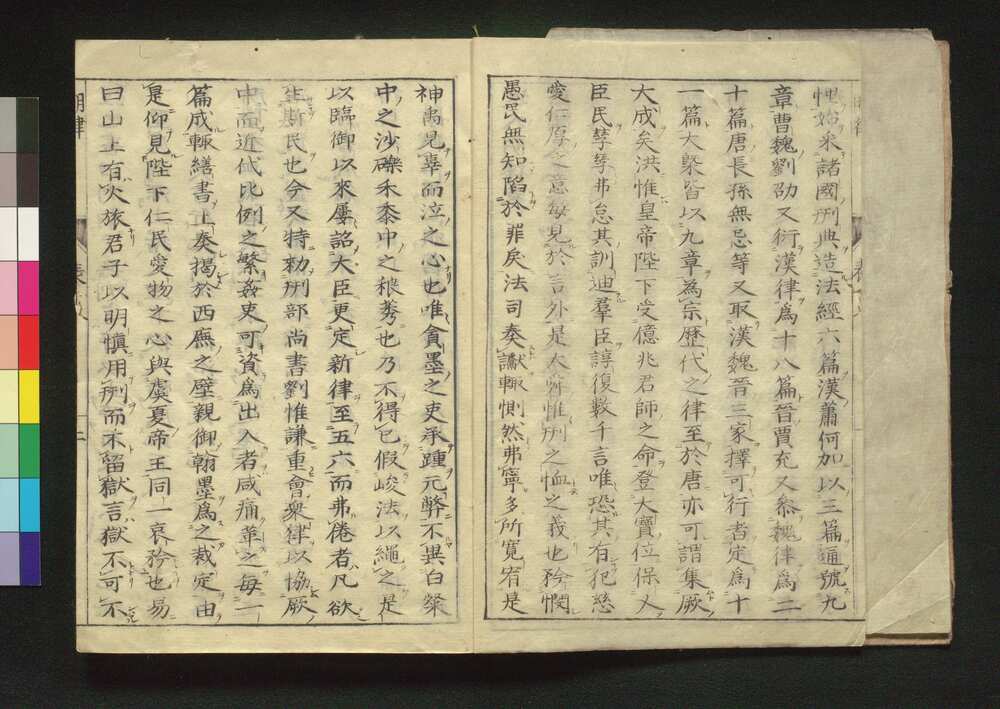 悝始采諸國刑典造法經六篇漢蕭何加以三篇通號九
章曹魏劉劭又衍漢律爲十八篇晉賈充又叅魏律爲二
十篇唐長孫無忌等又取漢魏晉三家擇可行者定爲十
一篇大槩皆以九章為宗歷代之律至於唐亦可謂集厥
大成矣洪惟皇帝陛下受億兆君師之命登大寶位保乂
臣民孳孳弗怠其訓迪羣臣諄復數千言唯恐其有犯慈
愛仁厚之意每見於言外是大舜惟刑之恤之義也矜憫
愚民無知陷於罪戾法司奏讞輒惻然弗寧多所寛宥是
神禹見辜而泣之心也唯貪墨之吏承踵元弊不異白粲
中之沙礫禾黍中之稂莠也乃不得已假峻法以繩之是
以臨御以來屢詔大臣更定新律至五六而弗倦者凡欲
生斯民也今又特勑刑部尚書劉惟謙重會衆律以協厥
中而近代比例之繁姦吏可資爲出入者咸痛革之每一
篇成輒繕書上奏揭於西廡之壁親御翰墨爲之裁定由
是仰見陛下仁民愛物之心與虞夏帝王同一哀矜也易
曰山上有火旅君子以明慎用刑而不留獄言獄不可不